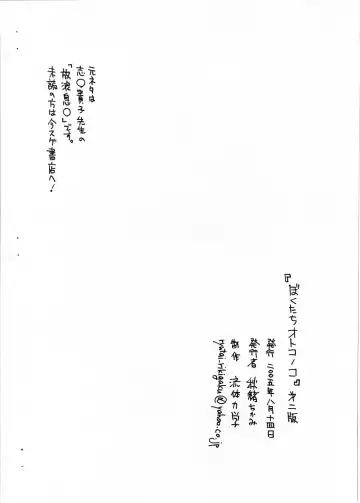 元ネタは
志〇貴子先生の
「放浪息〇」です。
未読の方は今スグ書店へ！
『ぼくたちオトコノコ』第二版
発行 二〇〇五年八月十四日
発行者 秋緒ちゃみ
制作 流体力学
ryutai_rikigaku@yahoo.co.jp